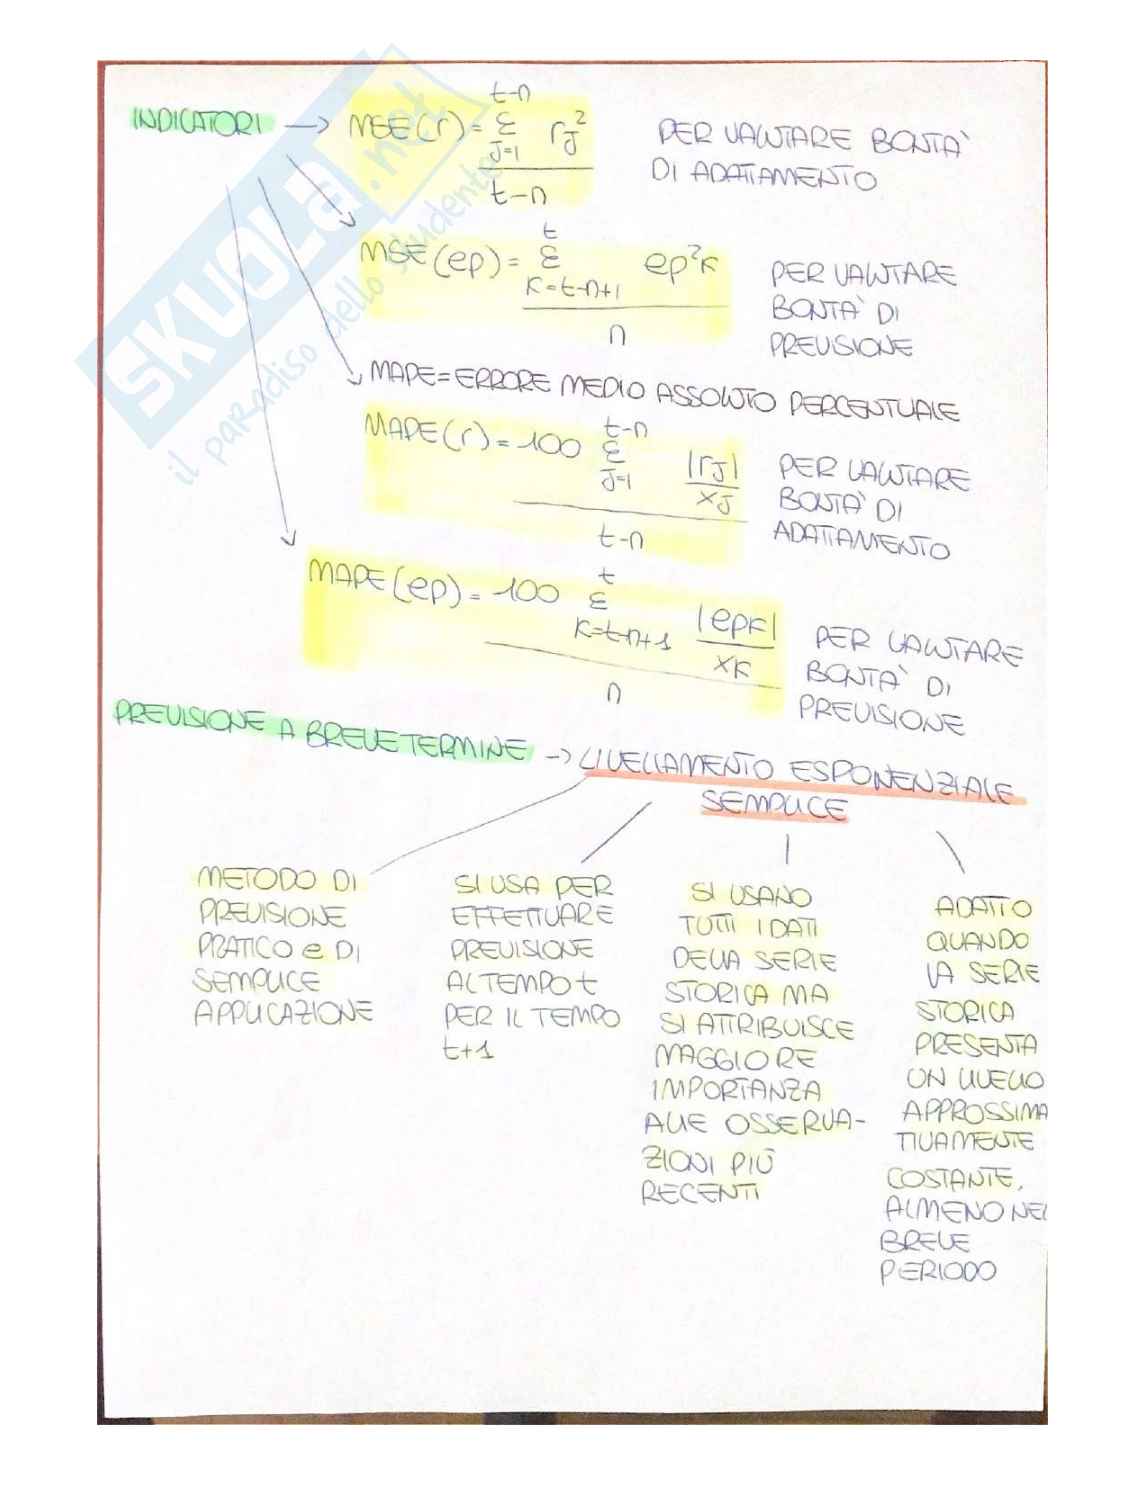 INDICATORI → MSE(r) = Σ_{J=1}^{t-n} r_J^2 / t-n
PER VALUTARE BONTA'
DI ADATTAMENTO
MSE(ep) = Σ_{K=t-n+1}^{t} ep^2_K / n
PER VALUTARE
BONTA' DI
PREVISIONE
MAPE = ERRORE MEDIO ASSOLUTO PERCENTUALE
MAPE(r) = 100 Σ_{J=1}^{t-n} |r_J| / x_J / t-n
PER VALUTARE
BONTA' DI
ADATTAMENTO
MAPE(ep) = 100 Σ_{K=t-n+1}^{t} |ep_K| / x_K / n
PER VALUTARE
BONTA' DI
PREVISIONE
PREVISIONE A BREVE TERMINE → LIVELLAMENTO ESPONENZIALE
SEMPLICE
METODO DI
PREVISIONE
PRATICO e DI
SEMPLICE
APPLICAZIONE
SI USA PER
EFFETTUARE
PREVISIONE
AL TEMPO t
PER IL TEMPO
t+1
SI USANO
TUTTI I DATI
DELLA SERIE
STORICA MA
SI ATTRIBUISCE
MAGGIORE
IMPORTANZA
ALLE OSSERVA-
ZIONI PIÙ
RECENTI
ADATTO
QUANDO
LA SERIE
STORICA
PRESENTA
UN LIVELLO
APPROSSIMA
TIVAMENTE
COSTANTE,
ALMENO NEL
BREVE
PERIODO
SKUOLA.net
il paradiso dello studente